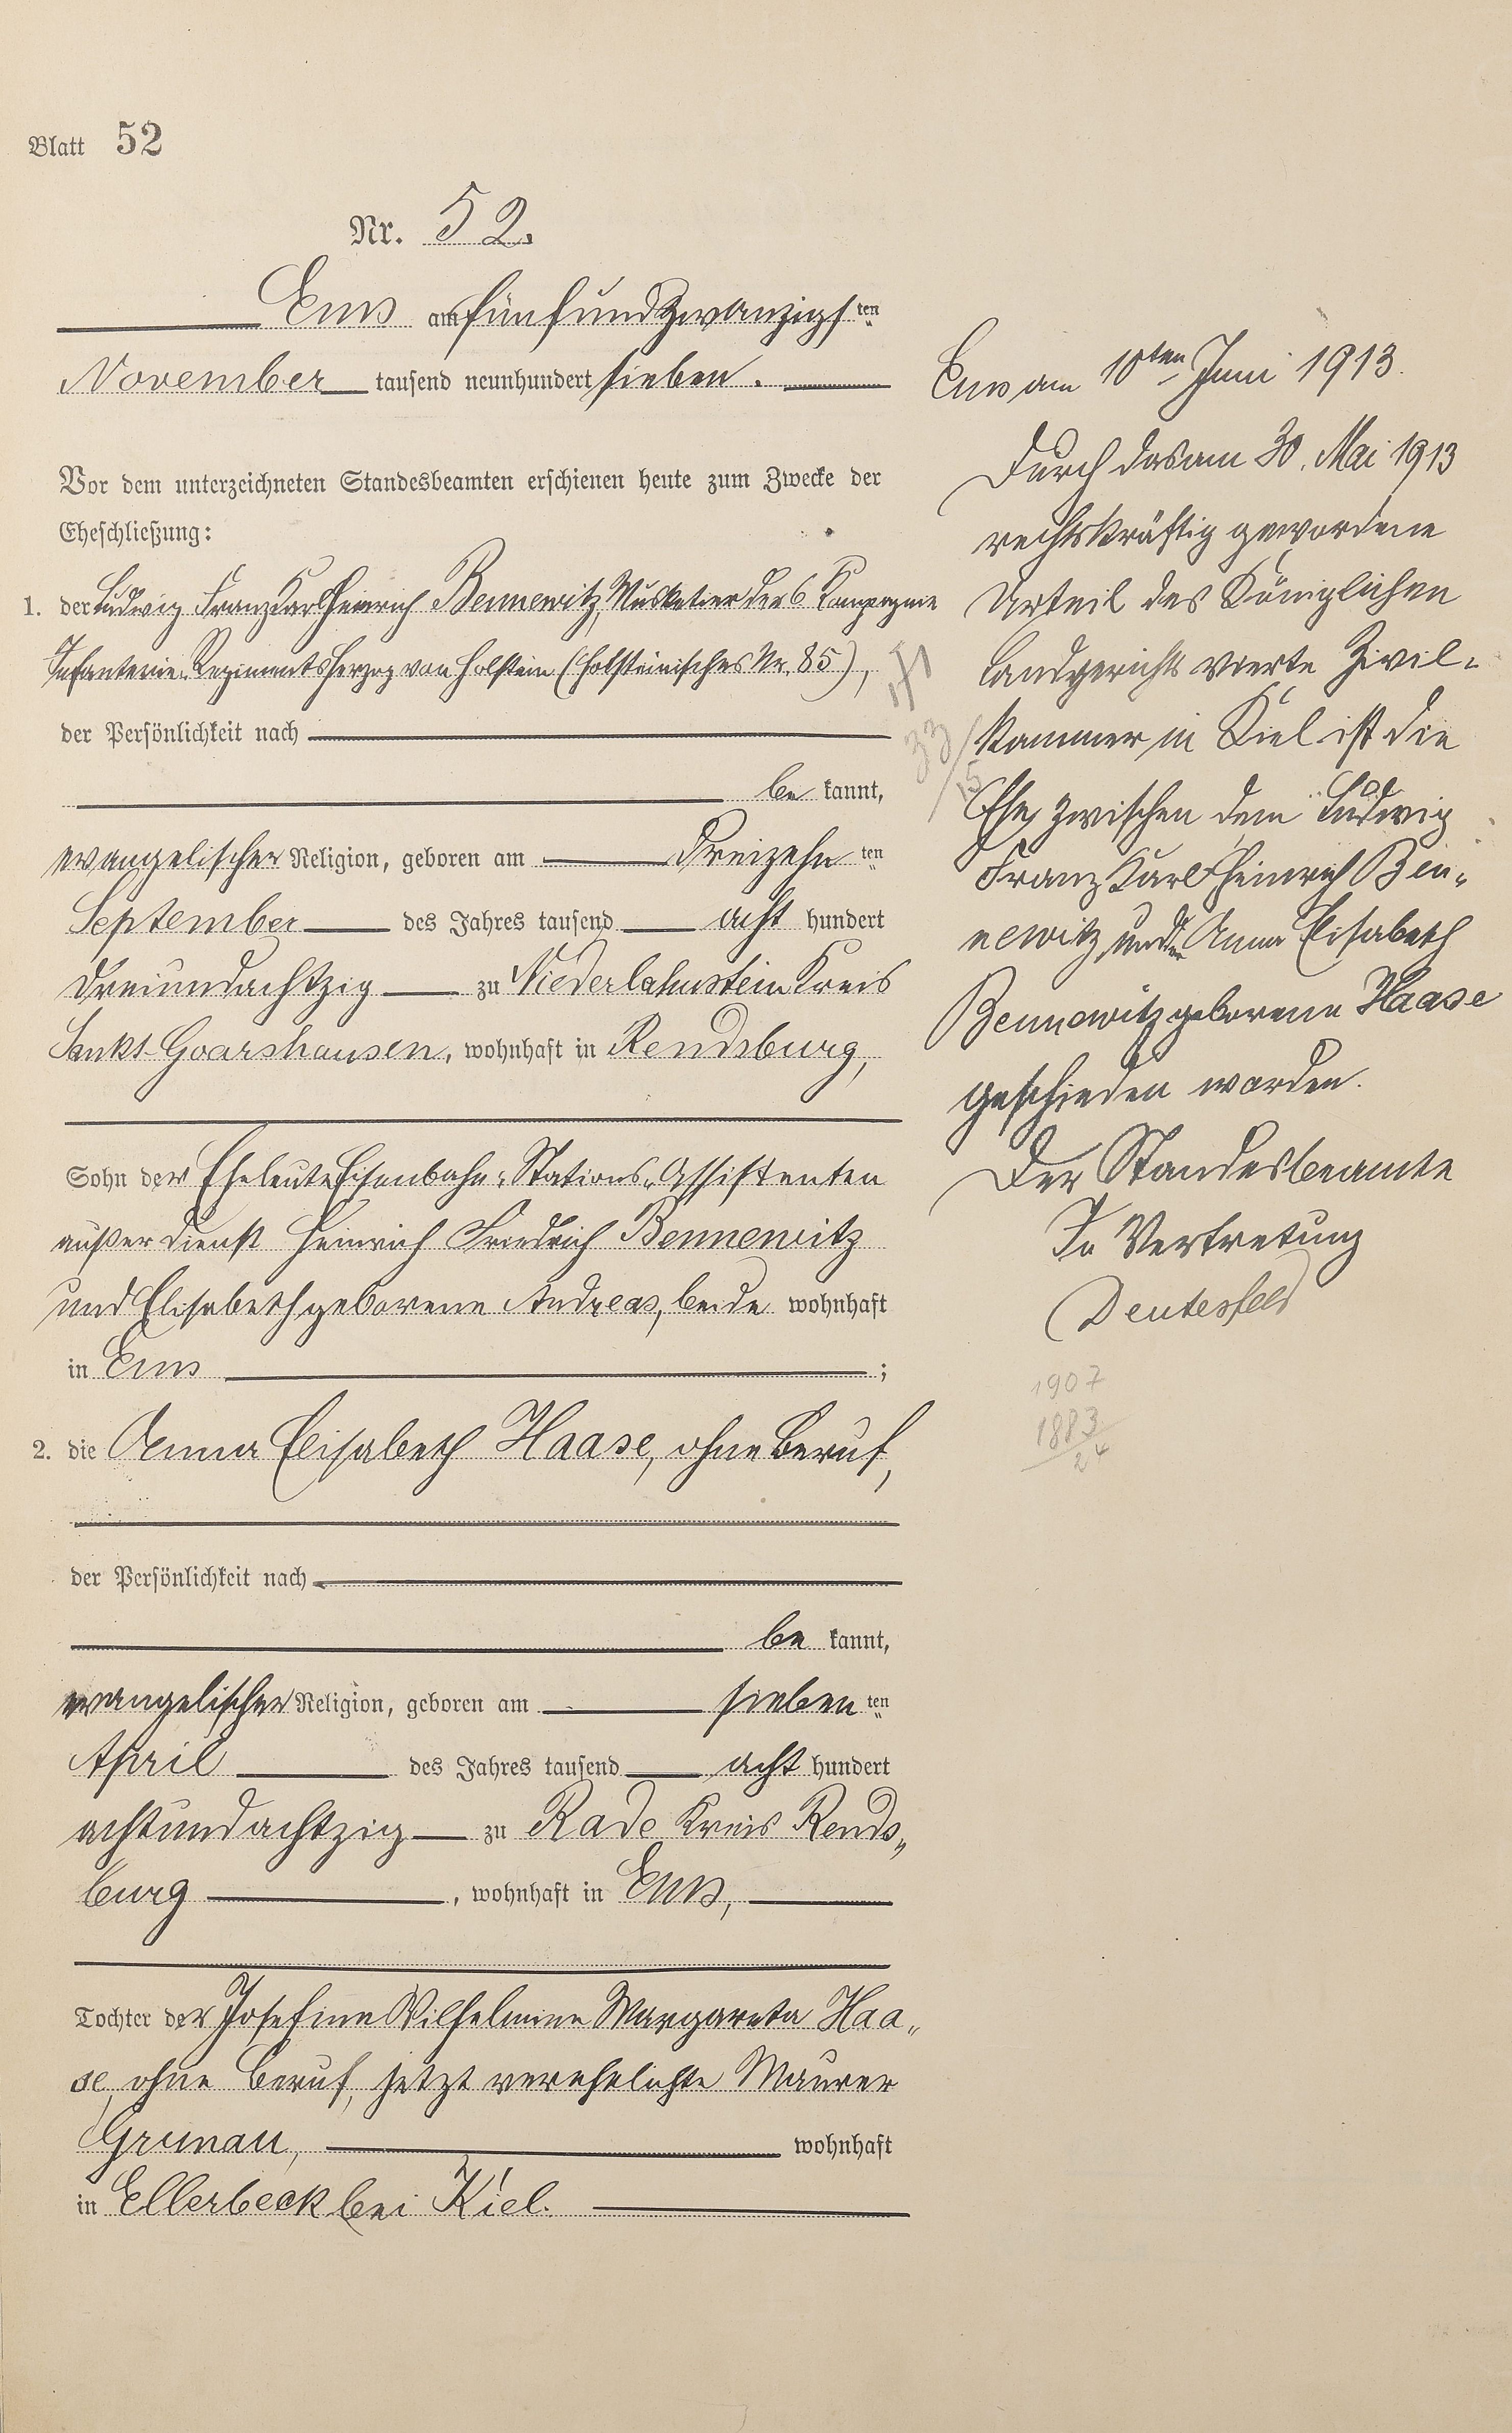 Blatt 52
Nr. 52.
Ems am fünfundzwanzigsten
November tausend neunhundert sieben.
Vor dem unterzeichneten Standesbeamten erschienen heute zum Zwecke der
Eheschließung:
1. der Ludwig Franz Karl Heinrich Bennewitz, Musketier der 6 Kompagnie
Infanterie-Regiments Herzog von Holstein (Holsteinisches Nr. 85),
der Persönlichkeit nach
be kannt,
evangelischer Religion, geboren am dreizehn ten
September des Jahres tausend acht hundert
dreiundachtzig zu Niederlahnstein Kreis
Sankt-Goarshausen, wohnhaft in Rendsburg,
Sohn der Eheleute Eisenbahn-Stations-Assistenten
außer Dienst Heinrich Friedrich Bennewitz
und Elisabeth geborene Andreas, beide wohnhaft
in Ems ;
2. die Anna Elisabeth Haase, ohne Beruf,
der Persönlichkeit nach
be kannt,
evangelischer Religion, geboren am sieben ten
April des Jahres tausend acht hundert
achtundachtzig zu Rade Kreis Rends-
burg , wohnhaft in Ems,
Tochter der Josefine Wilhelmine Margareta Haa-
se, ohne Beruf, jetzt verehelichte Maurer
Grunau, wohnhaft
in Ellerbeck bei Kiel.
Ems am 10ten Juni 1913.
Durch das am 30. Mai 1913
rechtskräftig gewordene
Urteil des Königlichen
Landgerichts vierte Zivil-
kammer in Kiel ist die
Ehe zwischen dem Ludwig
Franz Karl Heinrich Ben-
newitz und der Anna Elisabeth
Bennewitz geborene Haase
geschieden worden.
Der Standesbeamte
In Vertretung
Deutesfeld
1907
1883
24